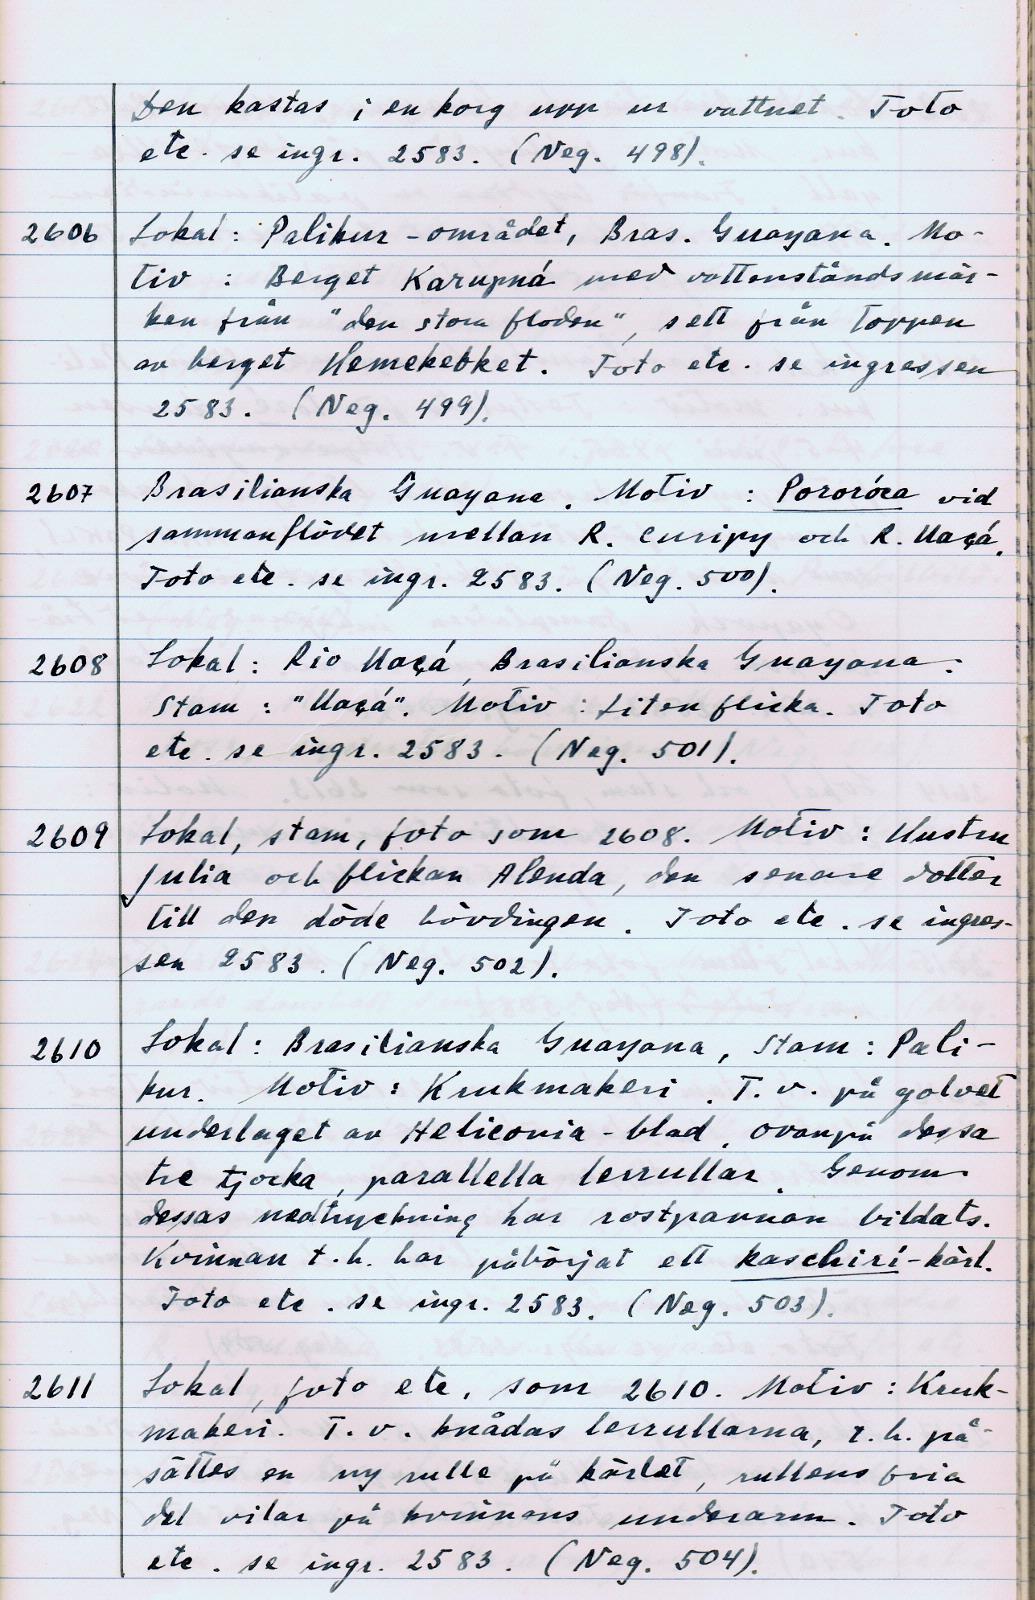 Den kastas i en korg upp ur vattnet. Foto
etc. se ingr. 2583. (Neg. 498).
2606 Lokal: Palikur-området, Bras. Guayana. Mo-
tiv: Berget Karupná med vattenståndsmär-
ken från "den stora floden", sett från toppen
av berget Hemekebket. Foto etc. se ingressen
2583. (Neg. 499).
2607 Brasilianska Guayana. Motiv: Pororóca vid
sammanflödet mellan R. Curipy och R. Uaçá.
Foto etc. se ingr. 2583. (Neg. 500).
2608 Lokal: Rio Uaçá, Brasilianska Guayana.
Stam: "Uaçá". Motiv: Liten flicka. Foto
etc. se ingr. 2583. (Neg. 501).
2609 Lokal, stam, foto som 2608. Motiv: Hustru
Julia och flickan Alenda, den senare dotter
till den döde hövdingen. Foto etc. se ingres-
sen 2583. (Neg. 502).
2610 Lokal: Brasilianska Guayana, Stam: Pali-
kur. Motiv: Krukmakeri. T.v. på golvet
underlaget av Heliconia-blad, ovanpå dessa
tre tjocka, parallella lerrullar. Genom
dessas nedtryckning har rostpannan bildats.
Kvinnan t.h. har påbörjat ett kaschiri-kärl.
Foto etc. se ingr. 2583. (Neg. 503).
2611 Lokal, foto etc, som 2610. Motiv: Kruk-
makeri. T.v. knådas lerrullarna, t.h. på-
sättes en ny rulle på kärlet, rullens fria
del vilar på kvinnans underarm. Foto
etc. se ingr. 2583. (Neg. 504).